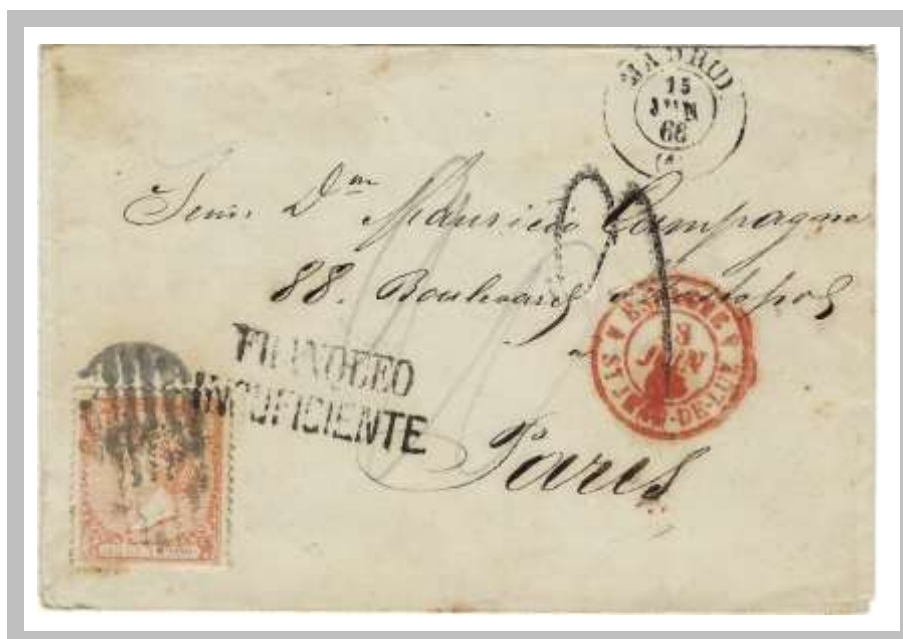 MADRID
15
JUN
66
Señr. Dn Mauricio Campagna
88. Boulevard Sebastopol
a
Paris
FRANQUEO
INSUFICIENTE
ESPAGNE
JUIN
ST JEAN-DE-LUZ